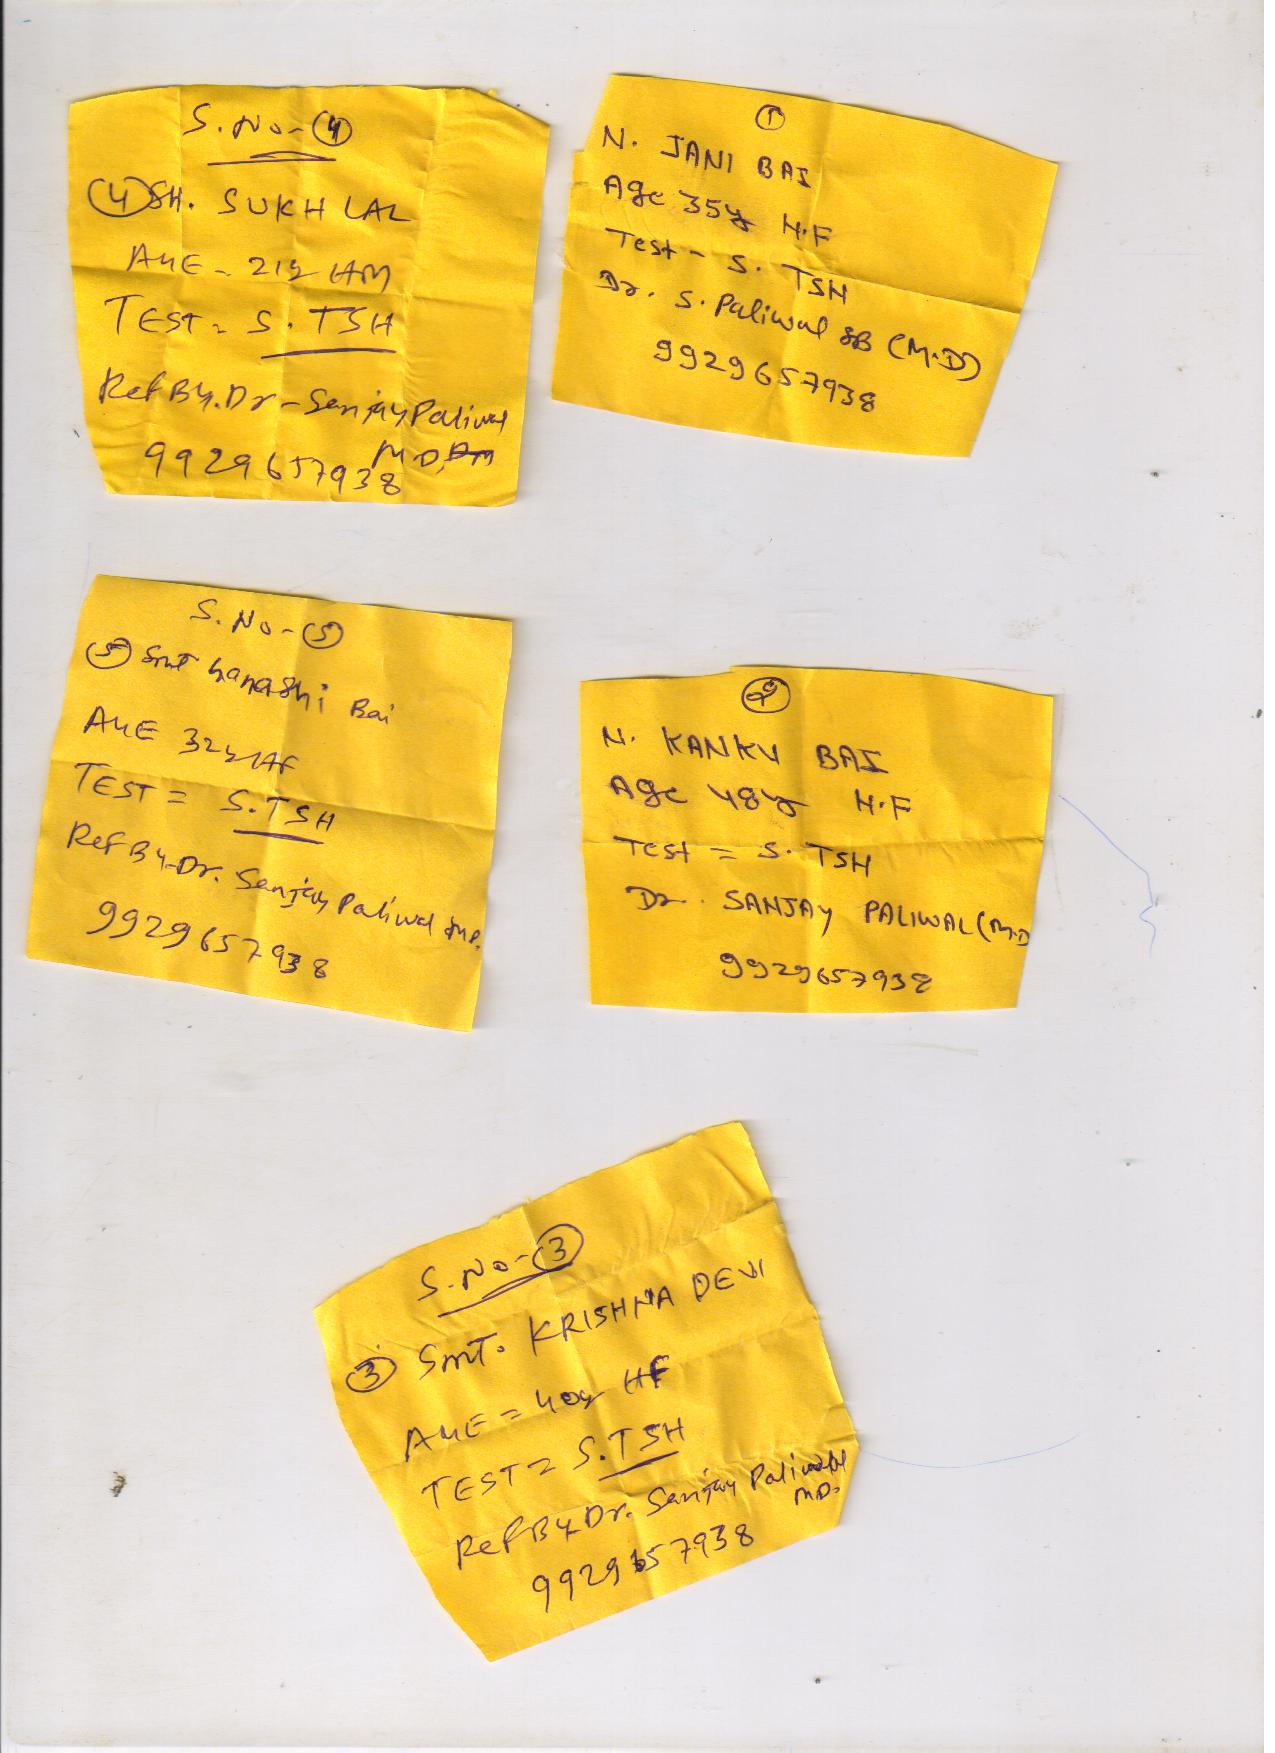 S.No-(4)
(4) SH. SUKH LAL
AGE - 21y HM
TEST = S. TSH
Ref By. Dr - Sanjay Paliwal
M.D.
9929657938
(1)
N. JANI BAI
Age 35y H.F
Test - S. TSH
Dr. S. Paliwal SB (M.D)
9929657938
S.No-(5)
(5) Smt Bai
AGE 32y HF
TEST = S.TSH
Ref By-Dr. Sanjay Paliwal MD.
9929657938
(2)
N. KANKU BAI
Age 48y H.F
Test = S. TSH
Dr. SANJAY PALIWAL (M.D
9929657938
S.No-(3)
(3) Smt. KRISHNA DEVI
AGE = 40y HF
TEST = S.TSH
Ref By Dr. Sanjay Paliwal
MD.
9929657938